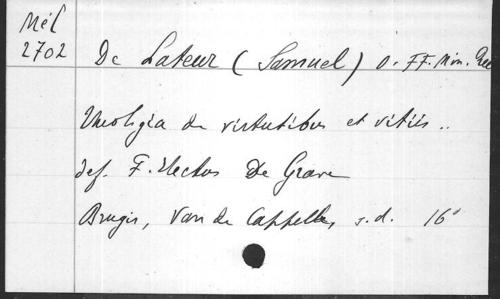 Mél
2702
De Lateur (Samuel) O. FF. Min. Rec
Theologia de virtutibus et vitiis..
def. F. Electus De Grave
Brugis, Van de Cappelle, s.d. 16°